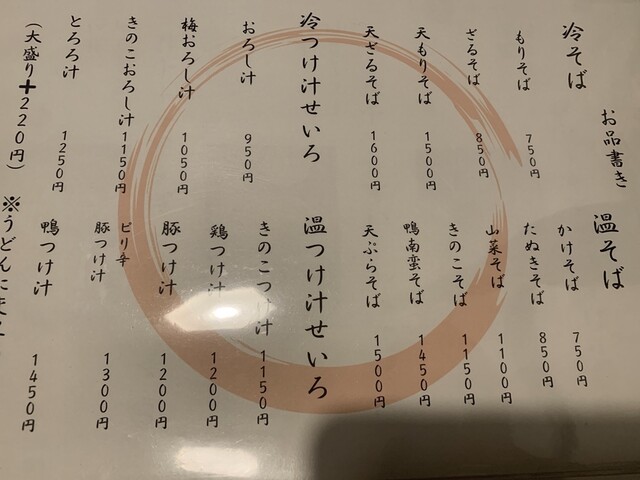 お品書き
冷そば
もりそば 750円
ざるそば 850円
天もりそば 1500円
天ざるそば 1600円
冷つけ汁せいろ
おろし汁 950円
梅おろし汁 1050円
きのこおろし汁 1150円
とろろ汁 1250円
(大盛り+220円)
温そば
かけそば 750円
たぬきそば 850円
山菜そば 1100円
きのこそば 1150円
鴨南蛮そば 1450円
天ぷらそば 1500円
温つけ汁せいろ
きのこつけ汁 1150円
鶏つけ汁 1200円
豚つけ汁 1200円
ピリ辛豚つけ汁 1300円
鴨つけ汁 1450円
※うどんに